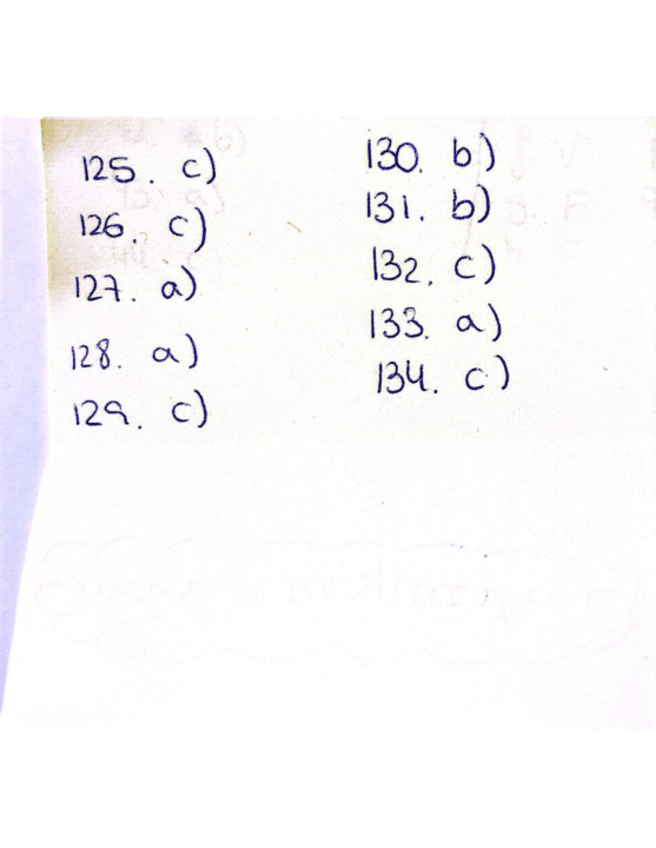 125. c)
126. c)
127. a)
128. a)
129. c)
130. b)
131. b)
132. c)
133. a)
134. c)